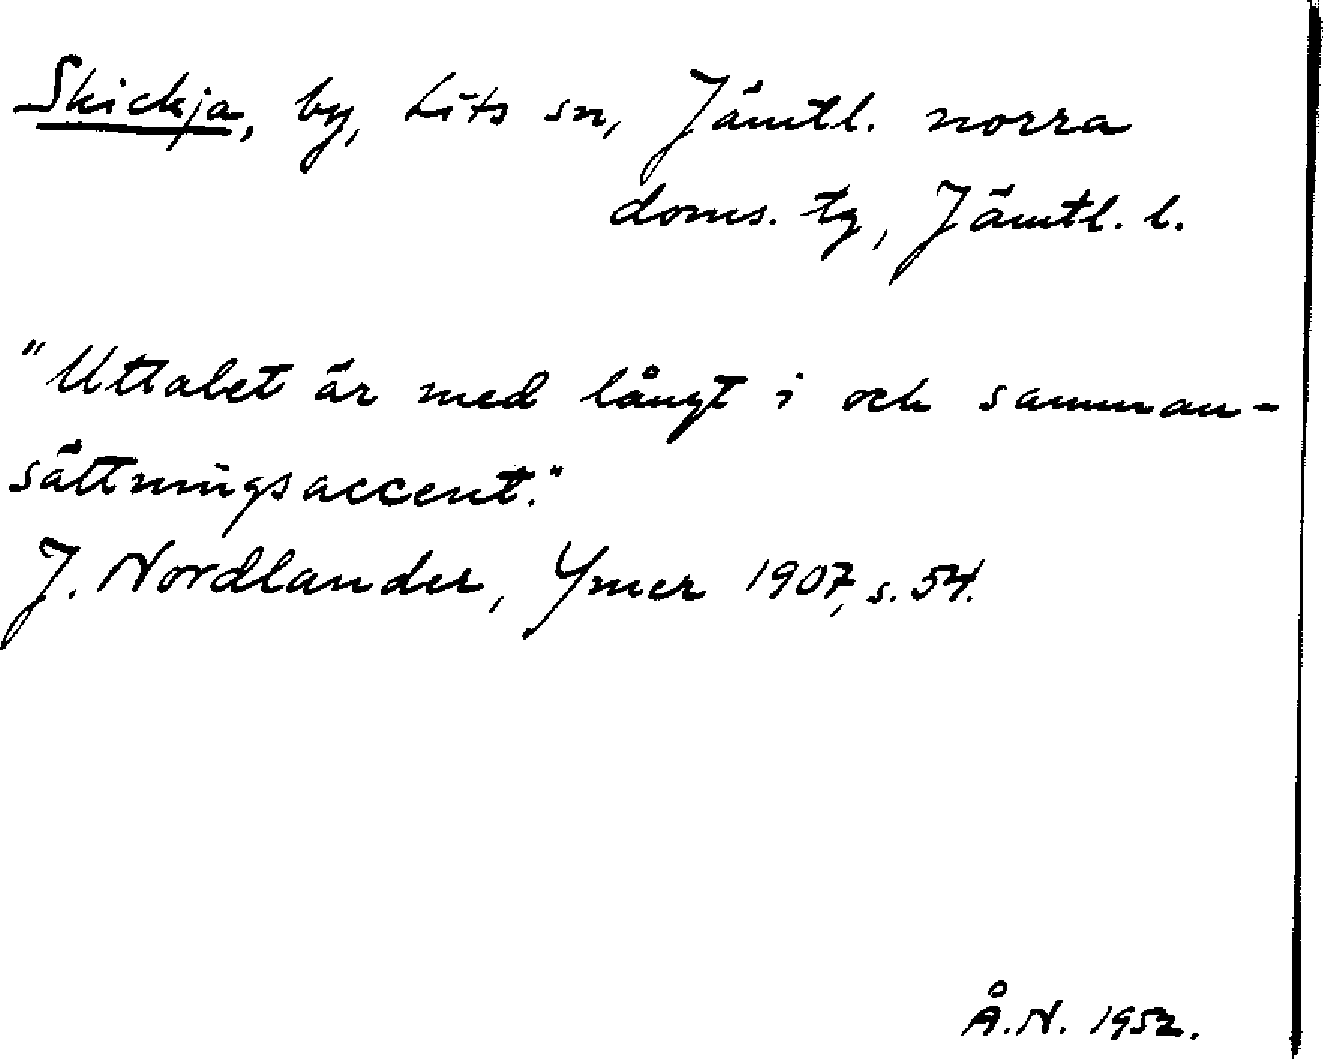 Skickja, by, Lits sn, Jämtl. norra
doms. tg, Jämtl. l.
"Uttalet är med långt i och samman-
sättningsaccent."
J. Nordlander, Ymer 1907, s. 54.
Å.N. 1952.